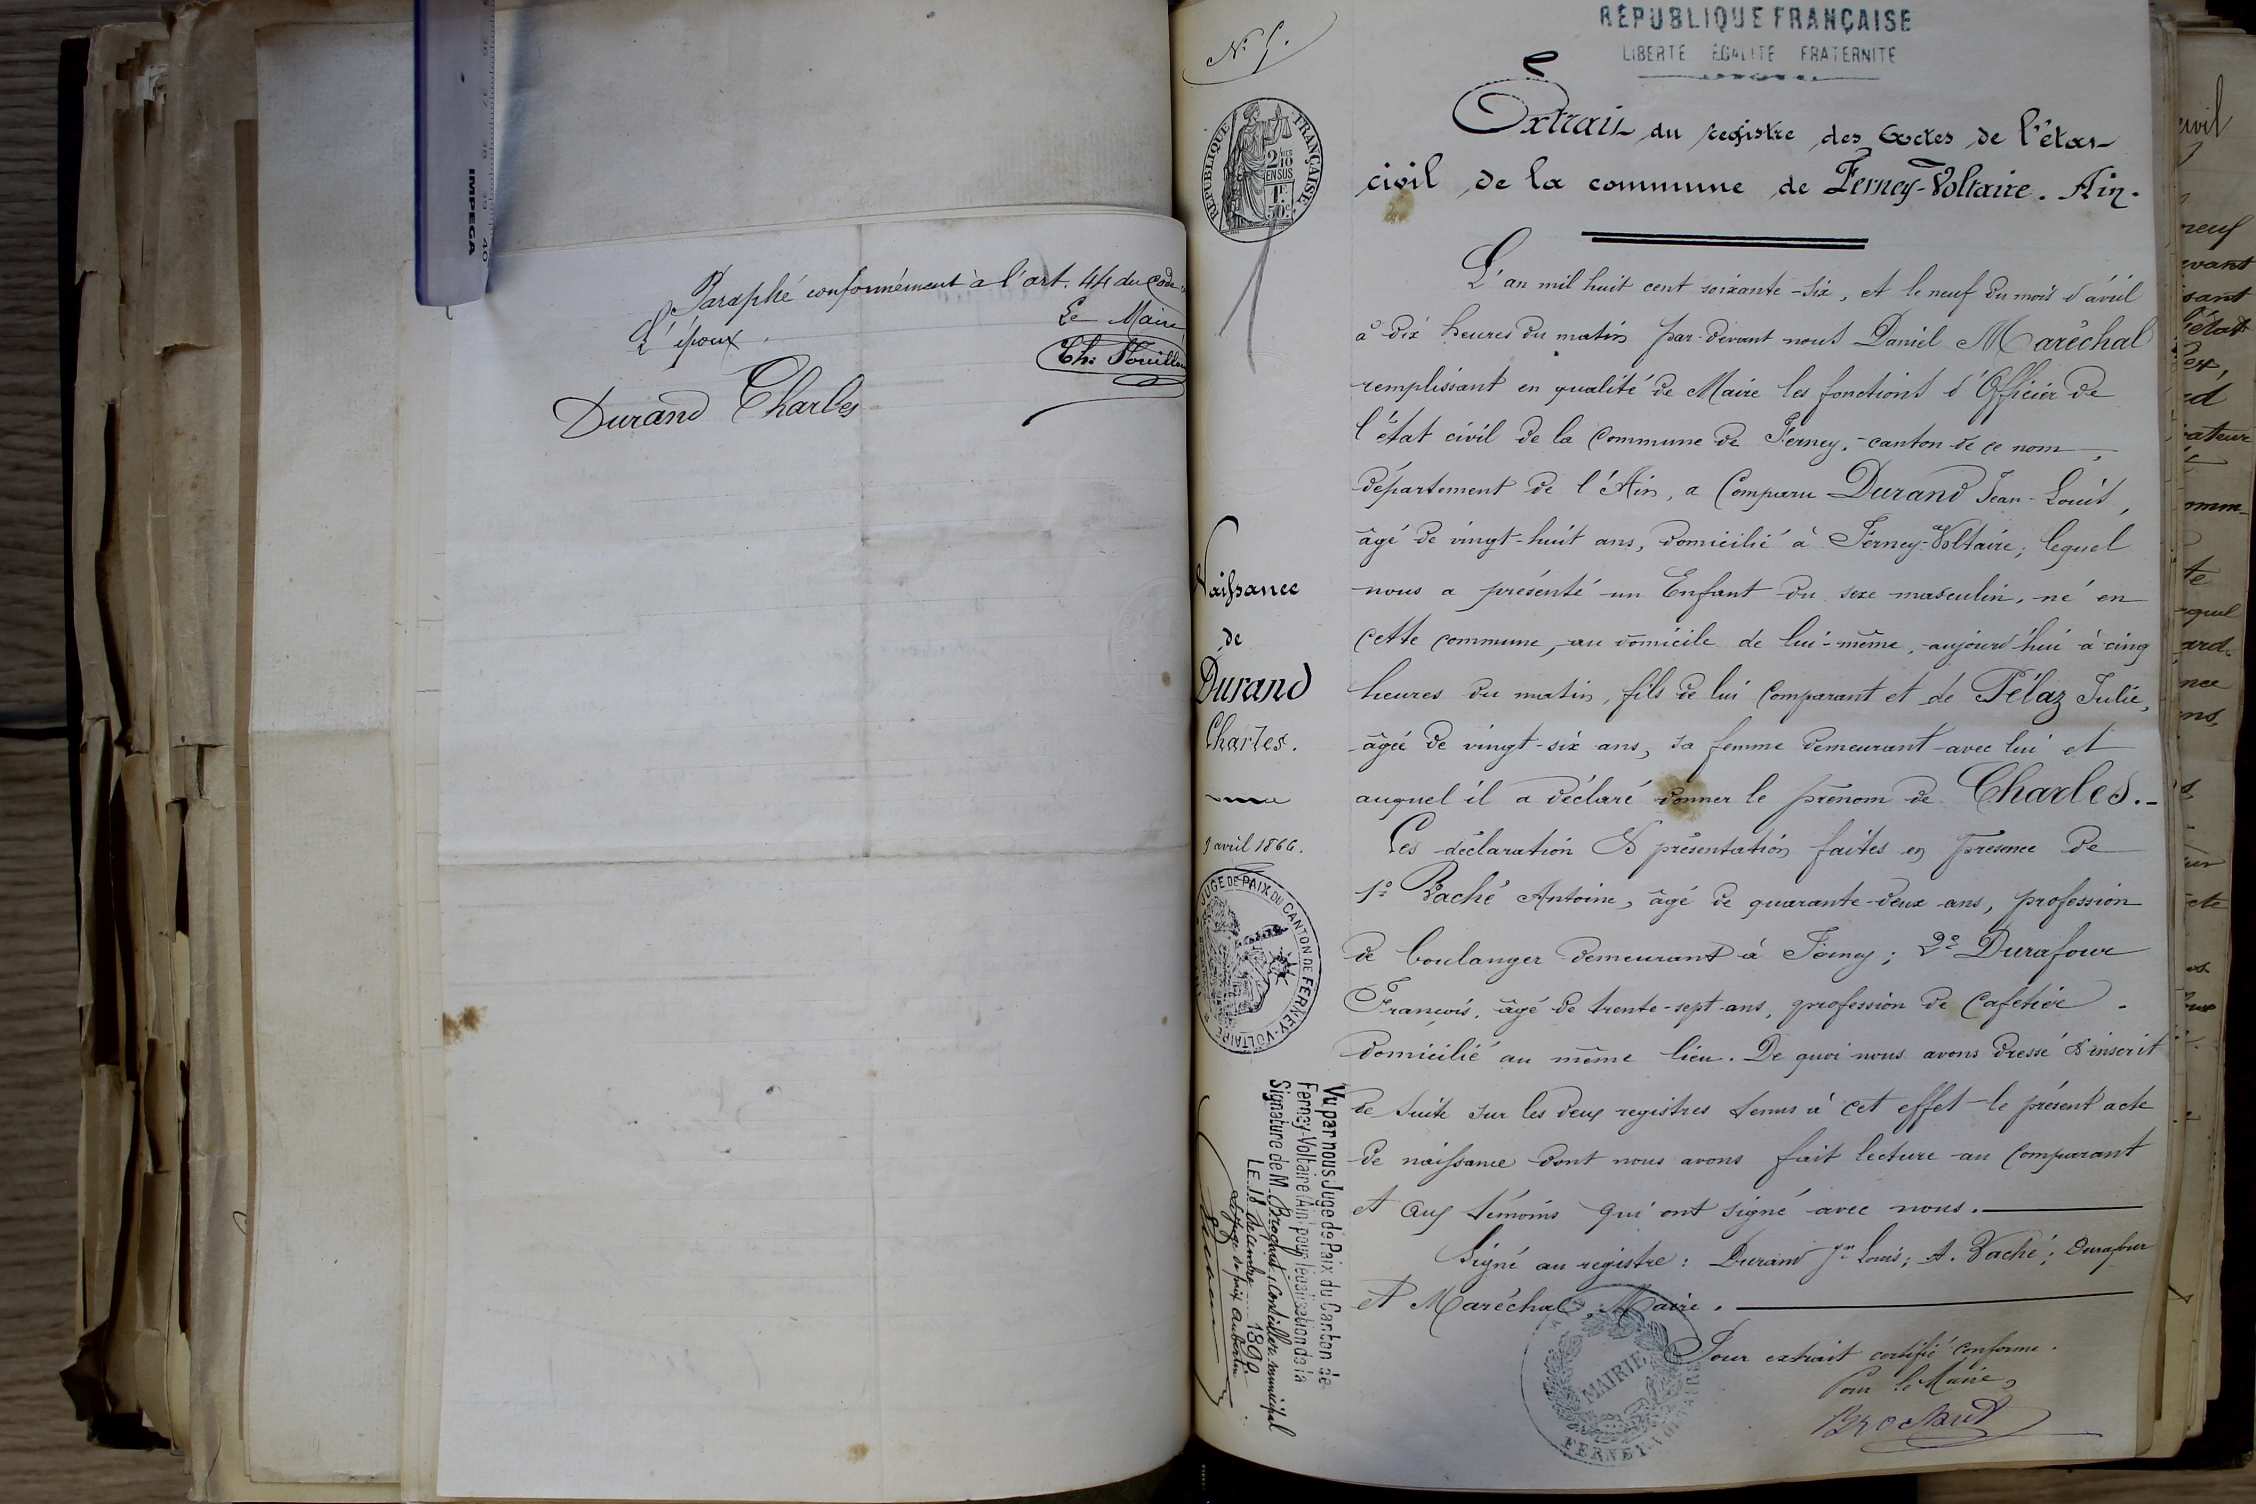 IMPEGA
Paraphé conformément à l'art. 44 du Code
L'époux
Le Maire
Durand Charles
N° 5.
RÉPUBLIQUE FRANÇAISE
LIBERTÉ ÉGALITÉ FRATERNITÉ
RÉPUBLIQUE FRANÇAISE
2/10
EN SUS
1F
50c
Extrait du registre des Actes de l'état
civil de la commune de Ferney-Voltaire. Ain.
L'an mil huit cent soixante-six, et le neuf du mois d'avril
à dix heures du matin par-devant nous Daniel Maréchal
remplissant en qualité de Maire les fonctions d'Officier de
l'état civil de la Commune de Ferney, canton de ce nom,
département de l'Ain, a Comparu Durand Jean-Louis,
âgé de vingt-huit ans, domicilié à Ferney-Voltaire, lequel
nous a présenté un Enfant du sexe masculin, né en
cette commune, au domicile de lui-même, aujourd'hui à cinq
heures du matin, fils de lui Comparant et de Pélaz Julie,
âgée de vingt-six ans, sa femme demeurant avec lui et
auquel il a déclaré donner le prénom de Charles.-
Les déclaration & présentation faites en présence de
1° Vaché Antoine, âgé de quarante-deux ans, profession
de boulanger demeurant à Ferney; 2° Durafour
François, âgé de trente-sept ans, profession de Cafetier
domicilié au même lieu. De quoi nous avons dressé & inscrit
de suite sur les deux registres tenus à cet effet le présent acte
de naissance dont nous avons fait lecture au Comparant
et aux témoins qui ont signé avec nous.
Signé au registre: Durand Jn Louis; A. Vaché; Durafour
et Maréchal, Maire.
Pour extrait certifié conforme.
Pour le Maire,
Brochut
MAIRIE
FERNEY-VOLTAIRE
Naissance
de
Durand
Charles.
9 avril 1866.
JUGE DE PAIX DU CANTON DE FERNEY-VOLTAIRE
Vu par nous Juge de Paix du Canton de
Ferney-Voltaire (Ain) pour légalisation de la
Signature de M. Brochut, Conseiller municipal
LE 18 décembre 1890
Le Juge de paix